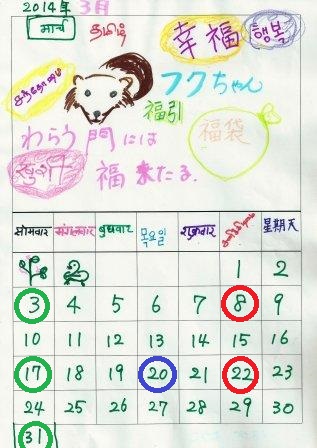 2014年 3月
मार्च
தமிழ்
幸福 행복
சந்தோஷம்
フクちゃん
福引
福袋
わらう門には
福来たる.
सोमवार मंगलवार बुधवार 목요일 शुक्रवार 星期天
1 2
3 4 5 6 7 8 9
10 11 12 13 14 15 16
17 18 19 20 21 22 23
24 25 26 27 28 29 30
31